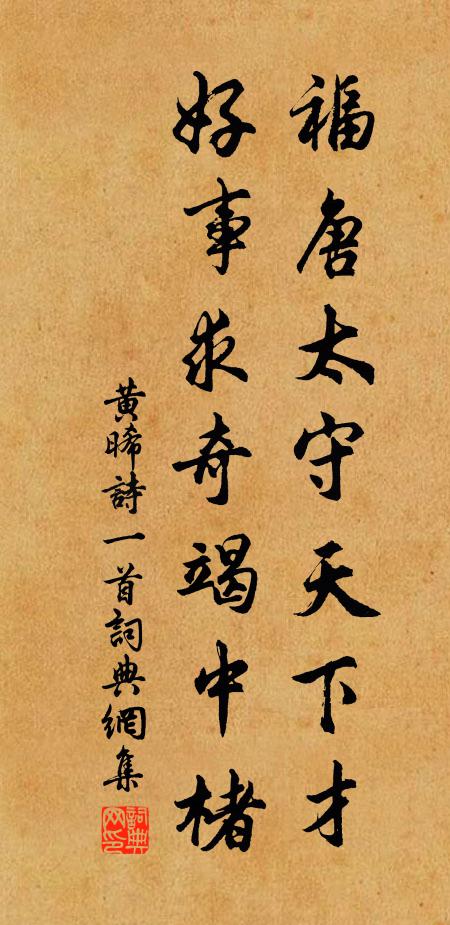 福唐太守天下才
好事求奇竭中楮
黄晞詩一首詞典網集
詞典网印